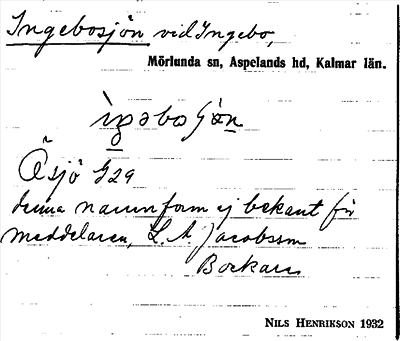 Ingebosjön vid Ingebo,
Mörlunda sn, Aspelands hd, Kalmar län.
Åsjö G29
denna namnform ej bekant för
meddelaren, L. A. Jacobsson
Bockara
NILS HENRIKSON 1932